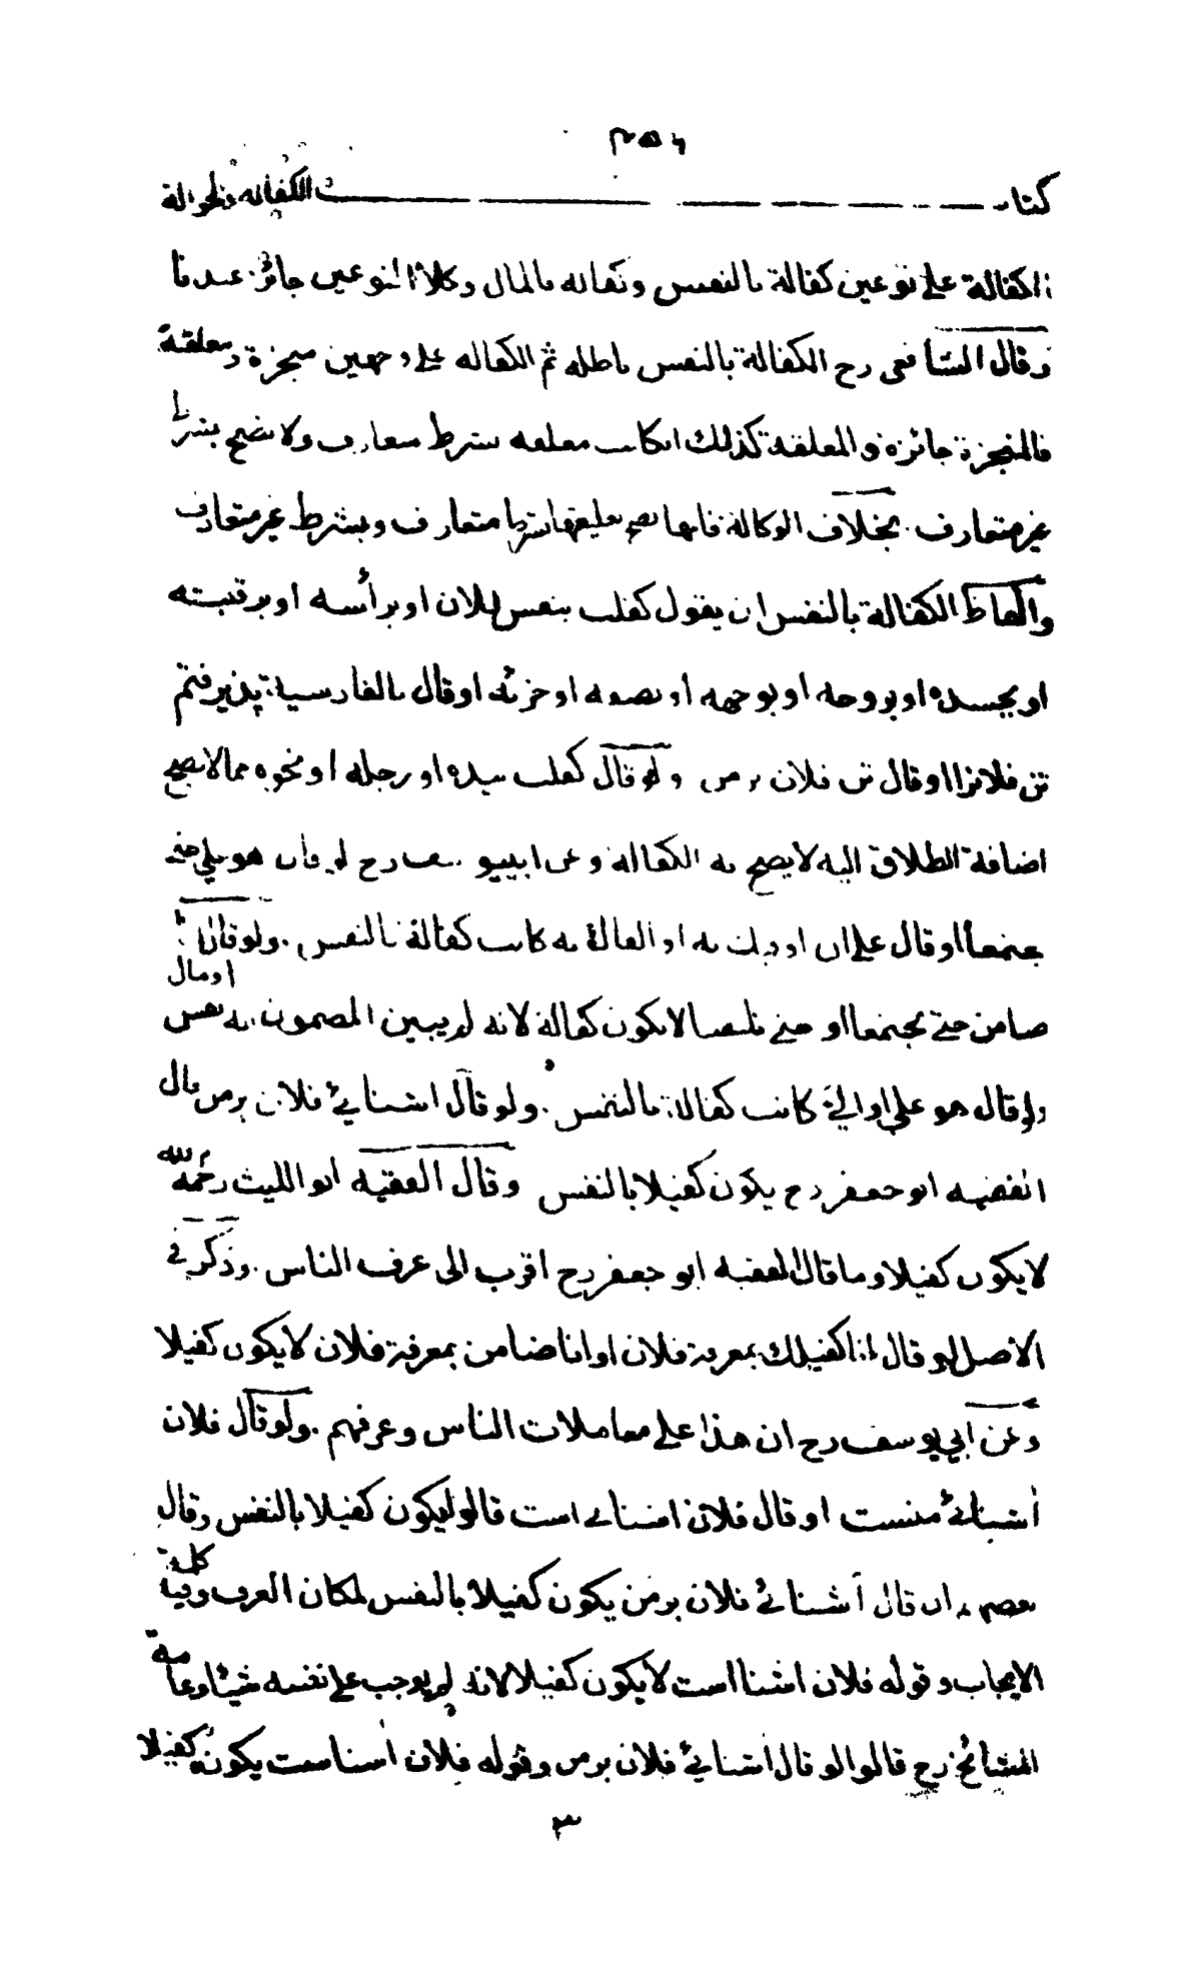 كتاب الكفالة والحوالة
الكفالة على نوعين كفالة بالنفس وكفالة بالمال وكلا النوعين جائز عندنا
وقال الشافعي رح الكفالة بالنفس باطلة ثم الكفالة على وجهين منجزة ومعلقة
فالمنجزة جائزة والمعلقة كذلك انكانت معلقة بشرط متعارف ولا تصح بشرط
غير متعارف بخلاف الوكالة فانها تصح تعليقها بشرط متعارف وبشرط غير متعارف
والفاظ الكفالة بالنفس ان يقول كفلت بنفس فلان او برأسه او برقبته
او بجسده او بروحه او بوجهه او بنصفه او جزئه او قال بالفارسية پذيرفتم
تن فلانرا او قال تن فلان بر من ولو قال كفلت بيده او رجله او نحوه مما لا يصح
اضافة الطلاق اليه لا يصح به الكفالة وعن ابييوسف رح لو قال هو علي حتى
يجتمعا او قال علي ان اوافيك به او القاك به كانت كفالة بالنفس ولو قال انا
ضامن حتى يجتمعا او حتى يلتقيا لا يكون كفالة لانه لم يبين المضمون به نفس او مال
ولو قال هو علي او الي كانت كفالة بالنفس ولو قال اشنائي فلان بر من قال
الفقيه ابو جعفر رح يكون كفيلا بالنفس وقال الفقيه ابو الليث رحمه الله
لا يكون كفيلا وما قال الفقيه ابو جعفر رح اقرب الى عرف الناس وذكر في
الاصل لو قال انا كفيلك بمعرفة فلان او انا ضامن بمعرفة فلان لا يكون كفيلا
وعن ابي يوسف رح ان هذا على معاملات الناس وعرفهم ولو قال فلان
اشنائي منست او قال فلان اشنائي است قالوا يكون كفيلا بالنفس وقال
بعضهم ان قال آشنائي فلان بر من يكون كفيلا بالنفس لمكان العرف وفيه كلمة
الايجاب وقوله فلان اشنا است لا يكون كفيلا لانه لم يوجب على نفسه شيئا وعامة
المشائخ رح قالوا لو قال اشنائي فلان بر من وقوله فلان اشناست يكون كفيلا